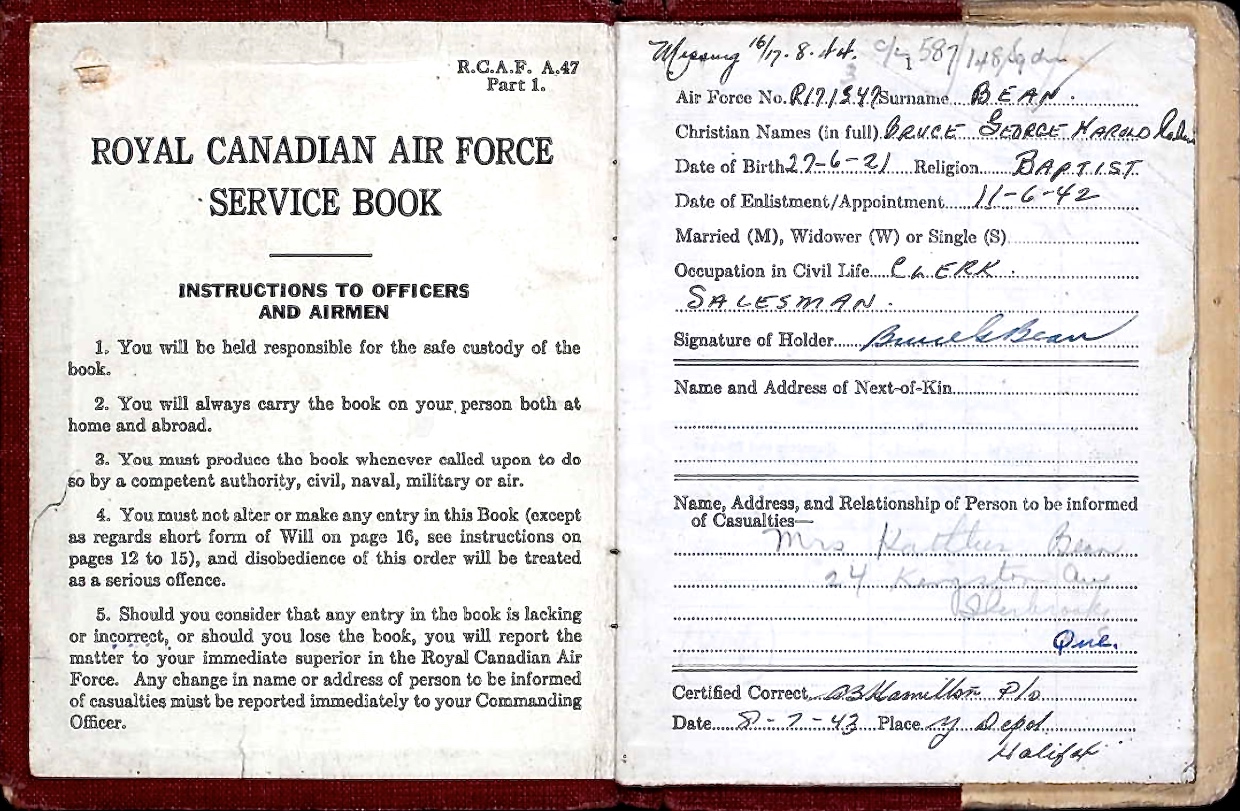 R.C.A.F. A.47
Part 1.
ROYAL CANADIAN AIR FORCE
SERVICE BOOK
INSTRUCTIONS TO OFFICERS
AND AIRMEN
1. You will be held responsible for the safe custody of the
book.
2. You will always carry the book on your person both at
home and abroad.
3. You must produce the book whenever called upon to do
so by a competent authority, civil, naval, military or air.
4. You must not alter or make any entry in this Book (except
as regards short form of Will on page 16, see instructions on
pages 12 to 15), and disobedience of this order will be treated
as a serious offence.
5. Should you consider that any entry in the book is lacking
or incorrect, or should you lose the book, you will report the
matter to your immediate superior in the Royal Canadian Air
Force. Any change in name or address of person to be informed
of casualties must be reported immediately to your Commanding
Officer.
Missing 16/17.8.44. 587/148/Sqdn
Air Force No. R171347 Surname BEAN.
Christian Names (in full) BRUCE GEORGE HAROLD
Date of Birth 27-6-21 Religion BAPTIST
Date of Enlistment/Appointment 11-6-42
Married (M), Widower (W) or Single (S)
Occupation in Civil Life CLERK.
SALESMAN.
Signature of Holder Bruce G Bean
Name and Address of Next-of-Kin
Name, Address, and Relationship of Person to be informed
of Casualties—
Mrs Bean
24 Kingston Ave
Sherbrooke
Que.
Certified Correct Hamilton P/o
Date 8-7-43 Place Y Depot
Halifax